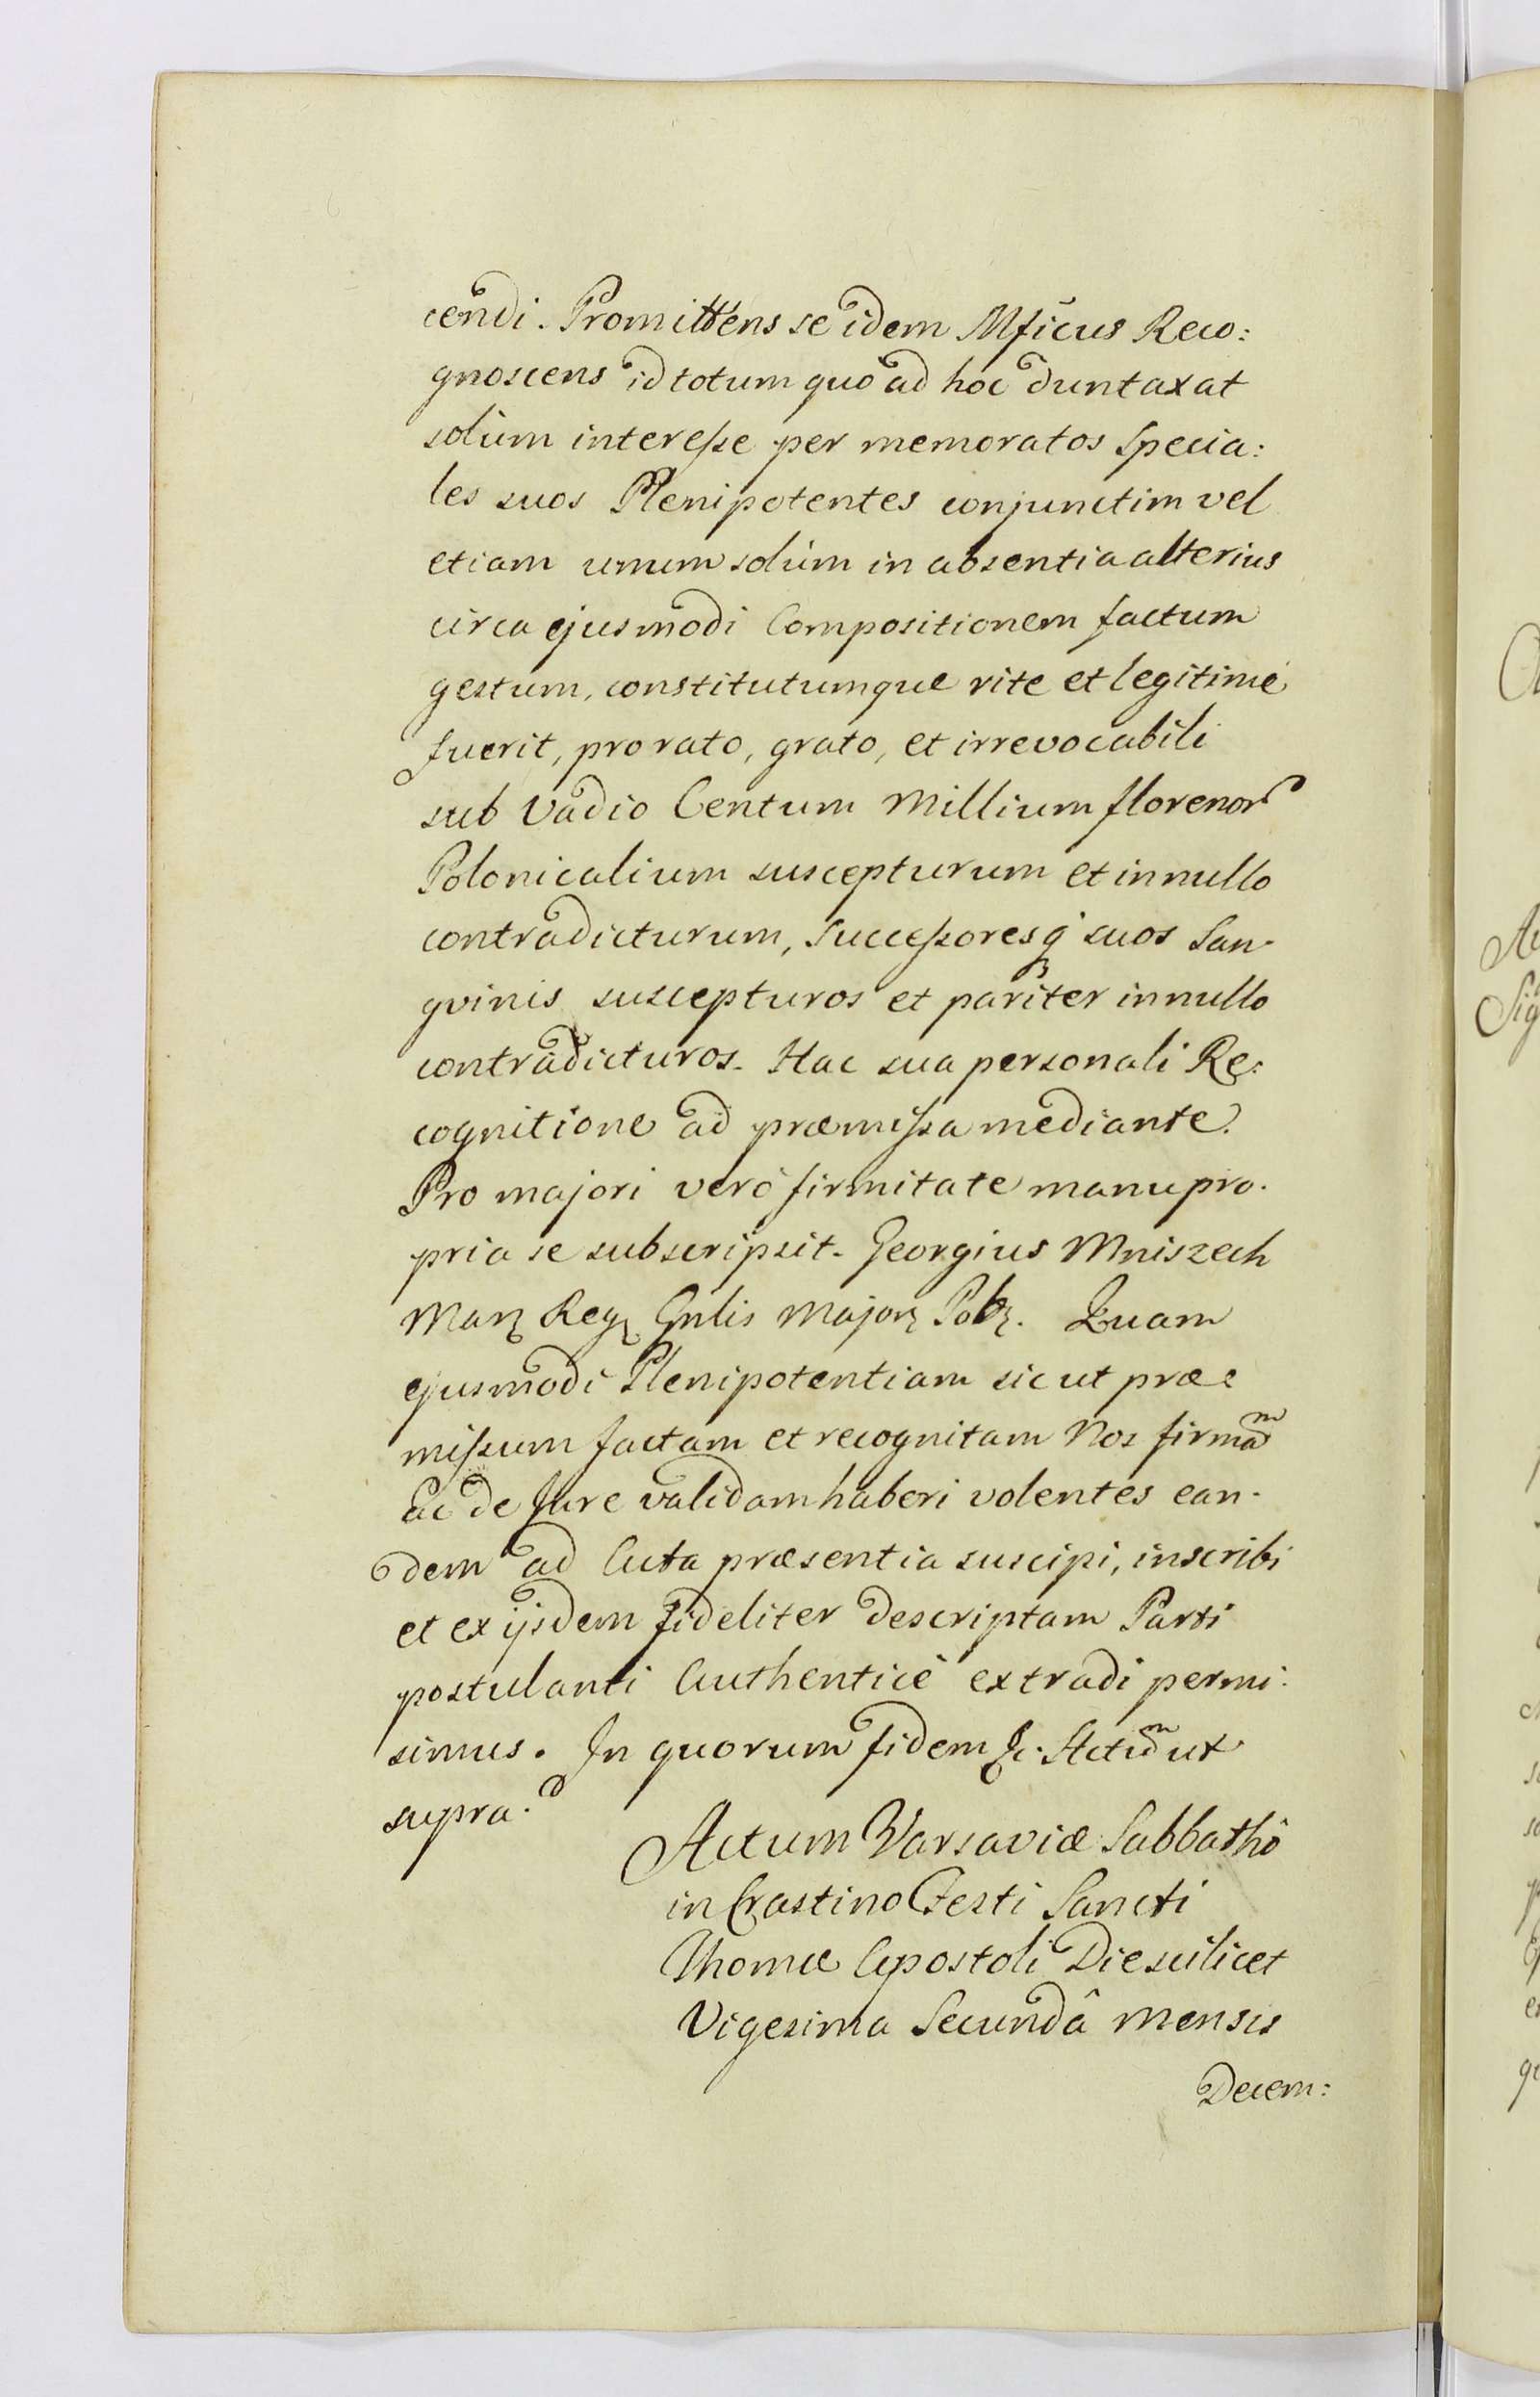 cendi. Promittens se idem Mficus Reco:
gnoscens id totum quo ad hoc duntaxat
solùm interesse per memoratos Specia:
les suos Plenipotentes conjunctim vel
etiam unum solùm in absentia alterius
circa ejusmodi Compositionem factum
gestum, constitutumque rite et legitimè
fuerit, pro rato, grato, et irrevocabili
sub Vadio Centum Millium florenor
Polonicalium suscepturum et in nullo
contradicturum, Successoresq suos San-
gvinis suscepturos et pariter in nullo
contradicturos. Hac sua personali Re:
cognitione ad præmissa mediante.
Pro majori verò firmitate manu pro-
pria se subscripsit. Georgius Mniszech
Mar Reg Gnlis Major Pol. Quam
ejusmodi Plenipotentiam sicut præ:
missum factam et recognitam Nos firmam
ac de Jure validam haberi volentes ean-
dem ad Acta præsentia suscipi, inscribi
et ex ijsdem fideliter descriptam Parti
postulanti Authenticè extradi permi:
simus. In quorum fidem &c. Actum ut
supra.
Actum Varsaviæ Sabbathô
in Crastino Festi Sancti
Thomæ Apostoli Die scilicet
Vigesima Secundâ Mensis
Decem: